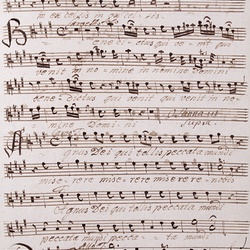 in ex celsis in ex cel - sis.
Benedictus qui ve - nit qui
venit in no - mine in nomine Domini
bene Dictus qui venit qui venit in no -
mine Do - mi ni Osanna ut supra
Agnus Dei qui tollis peccata mun di
mise - rere mise - rere miserere nobis
Agnus Dei qui tollis peccata mundi
peccata mundi pecca - ta mundi